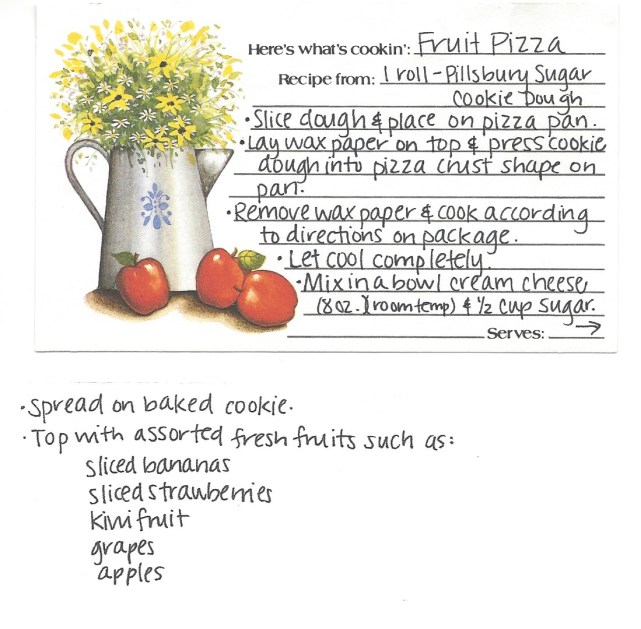 Here's what's cookin': Fruit Pizza
Recipe from: 1 roll - Pillsbury Sugar
Cookie Dough
• Slice dough & place on pizza pan.
• Lay wax paper on top & press cookie
dough into pizza crust shape on
pan.
• Remove wax paper & cook according
to directions on package.
• Let cool completely.
• Mix in a bowl cream cheese
(8 oz.)(room temp) & ½ cup sugar.
Serves: →
• Spread on baked cookie.
• Top with assorted fresh fruits such as:
sliced bananas
sliced strawberries
kiwi fruit
grapes
apples